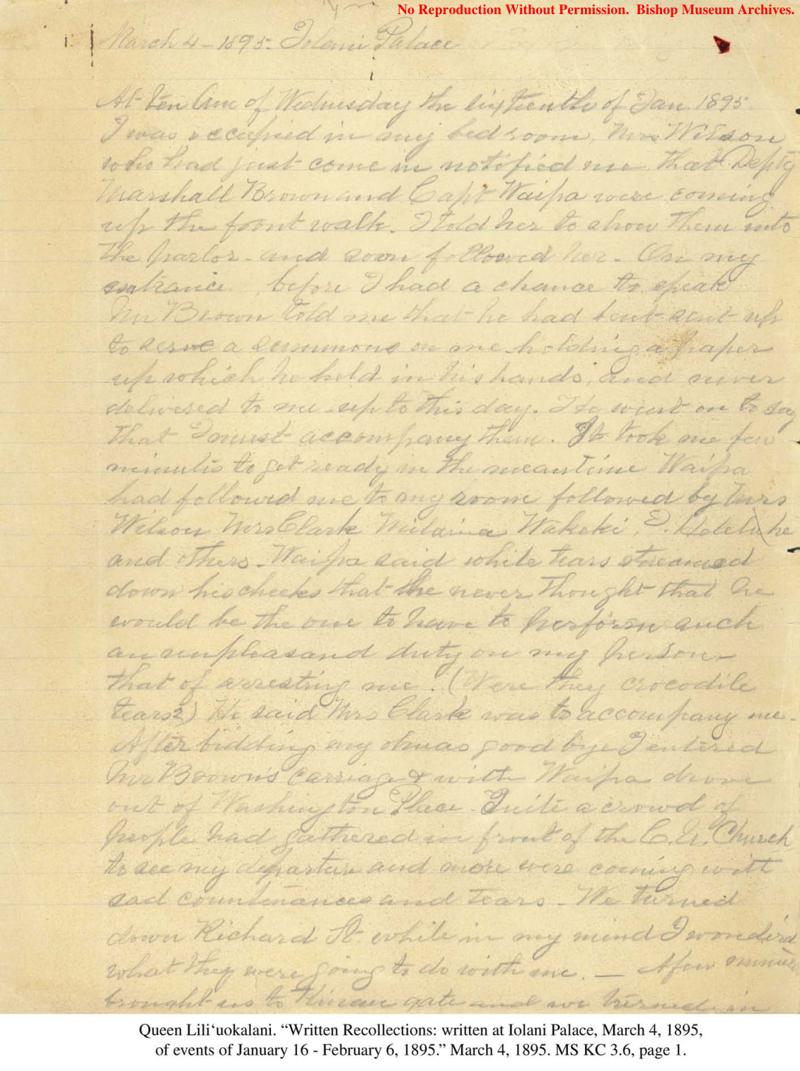 No Reproduction Without Permission. Bishop Museum Archives.
March 4 – 1895. Iolani Palace
At ten am of Wednesday the sixteenth of Jan. 1895
I was occupied in my bed room, Mrs Wilson
who had just come in notified me that Depty
Marshall Brown and Capt Waipa were coming
up the front walk. I told her to show them into
the parlor – and soon followed her – On my
entrance, before I had a chance to speak
Mr Brown told me that he had been sent up
to serve a summons on me holding a paper
up which he held in his hands, and never
delivered to me up to this day. He went on to say
that I must accompany them. It took me few
minutes to get ready in the meantime Waipa
had followed me to my room followed by Mrs
Wilson Mrs Clark Wakeki, he
and others – Waipa said while tears streamed
down his cheeks that he never thought that he
would be the one to have to perform such
an unpleasand duty on my person –
that of arresting me. (Were they crocodile
tears?) He said Mrs Clark was to accompany me –
After bidding my ohuas good bye I entered
Mr Brown's carriage & with Waipa drove
out of Washington Place – Quite a crowd of
people had gathered in front of the C. U. Church
to see my departure and more were coming with
sad countenances and tears – We turned
down Richard St while in my mind I wonder'd
what they were going to do with me. – A few
brought us to gate and we turned in
Queen Lili‘uokalani. “Written Recollections: written at Iolani Palace, March 4, 1895,
of events of January 16 - February 6, 1895.” March 4, 1895. MS KC 3.6, page 1.